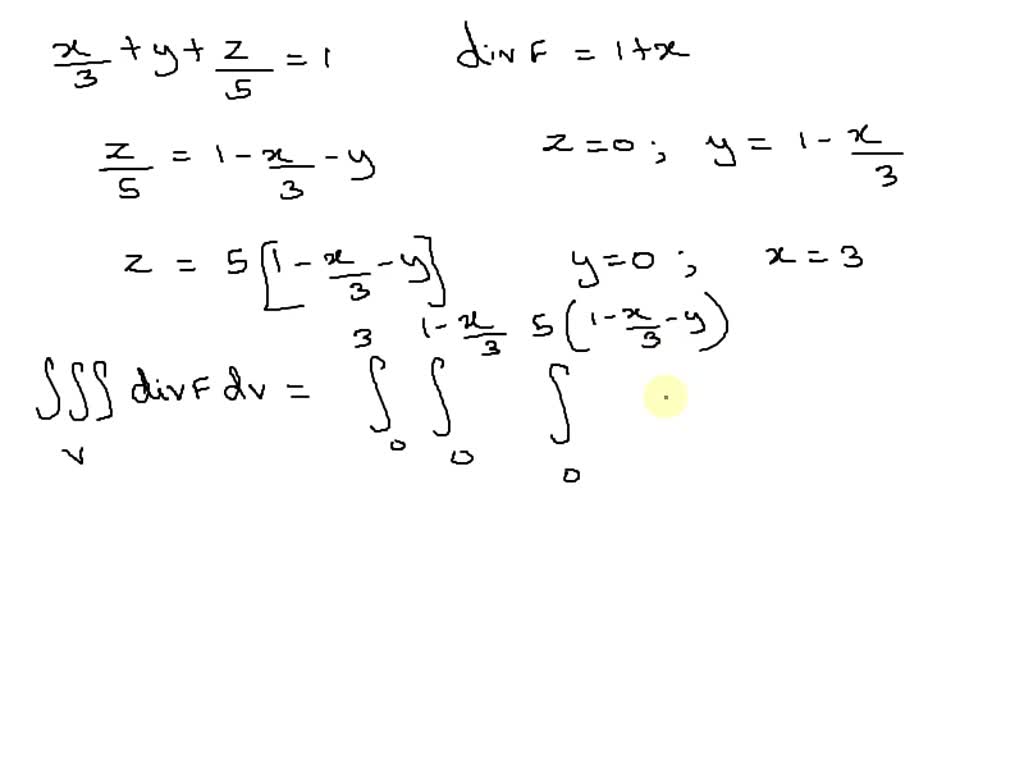 x/3 + y + z/5 = 1 div F = 1+x
z/5 = 1 - x/3 - y z = 0 ; y = 1 - x/3
z = 5 [1 - x/3 - y] y = 0 ; x = 3
∭_V div F dv = ∫_0^3 ∫_0^{1 - x/3} ∫_0^{5(1 - x/3 - y)}